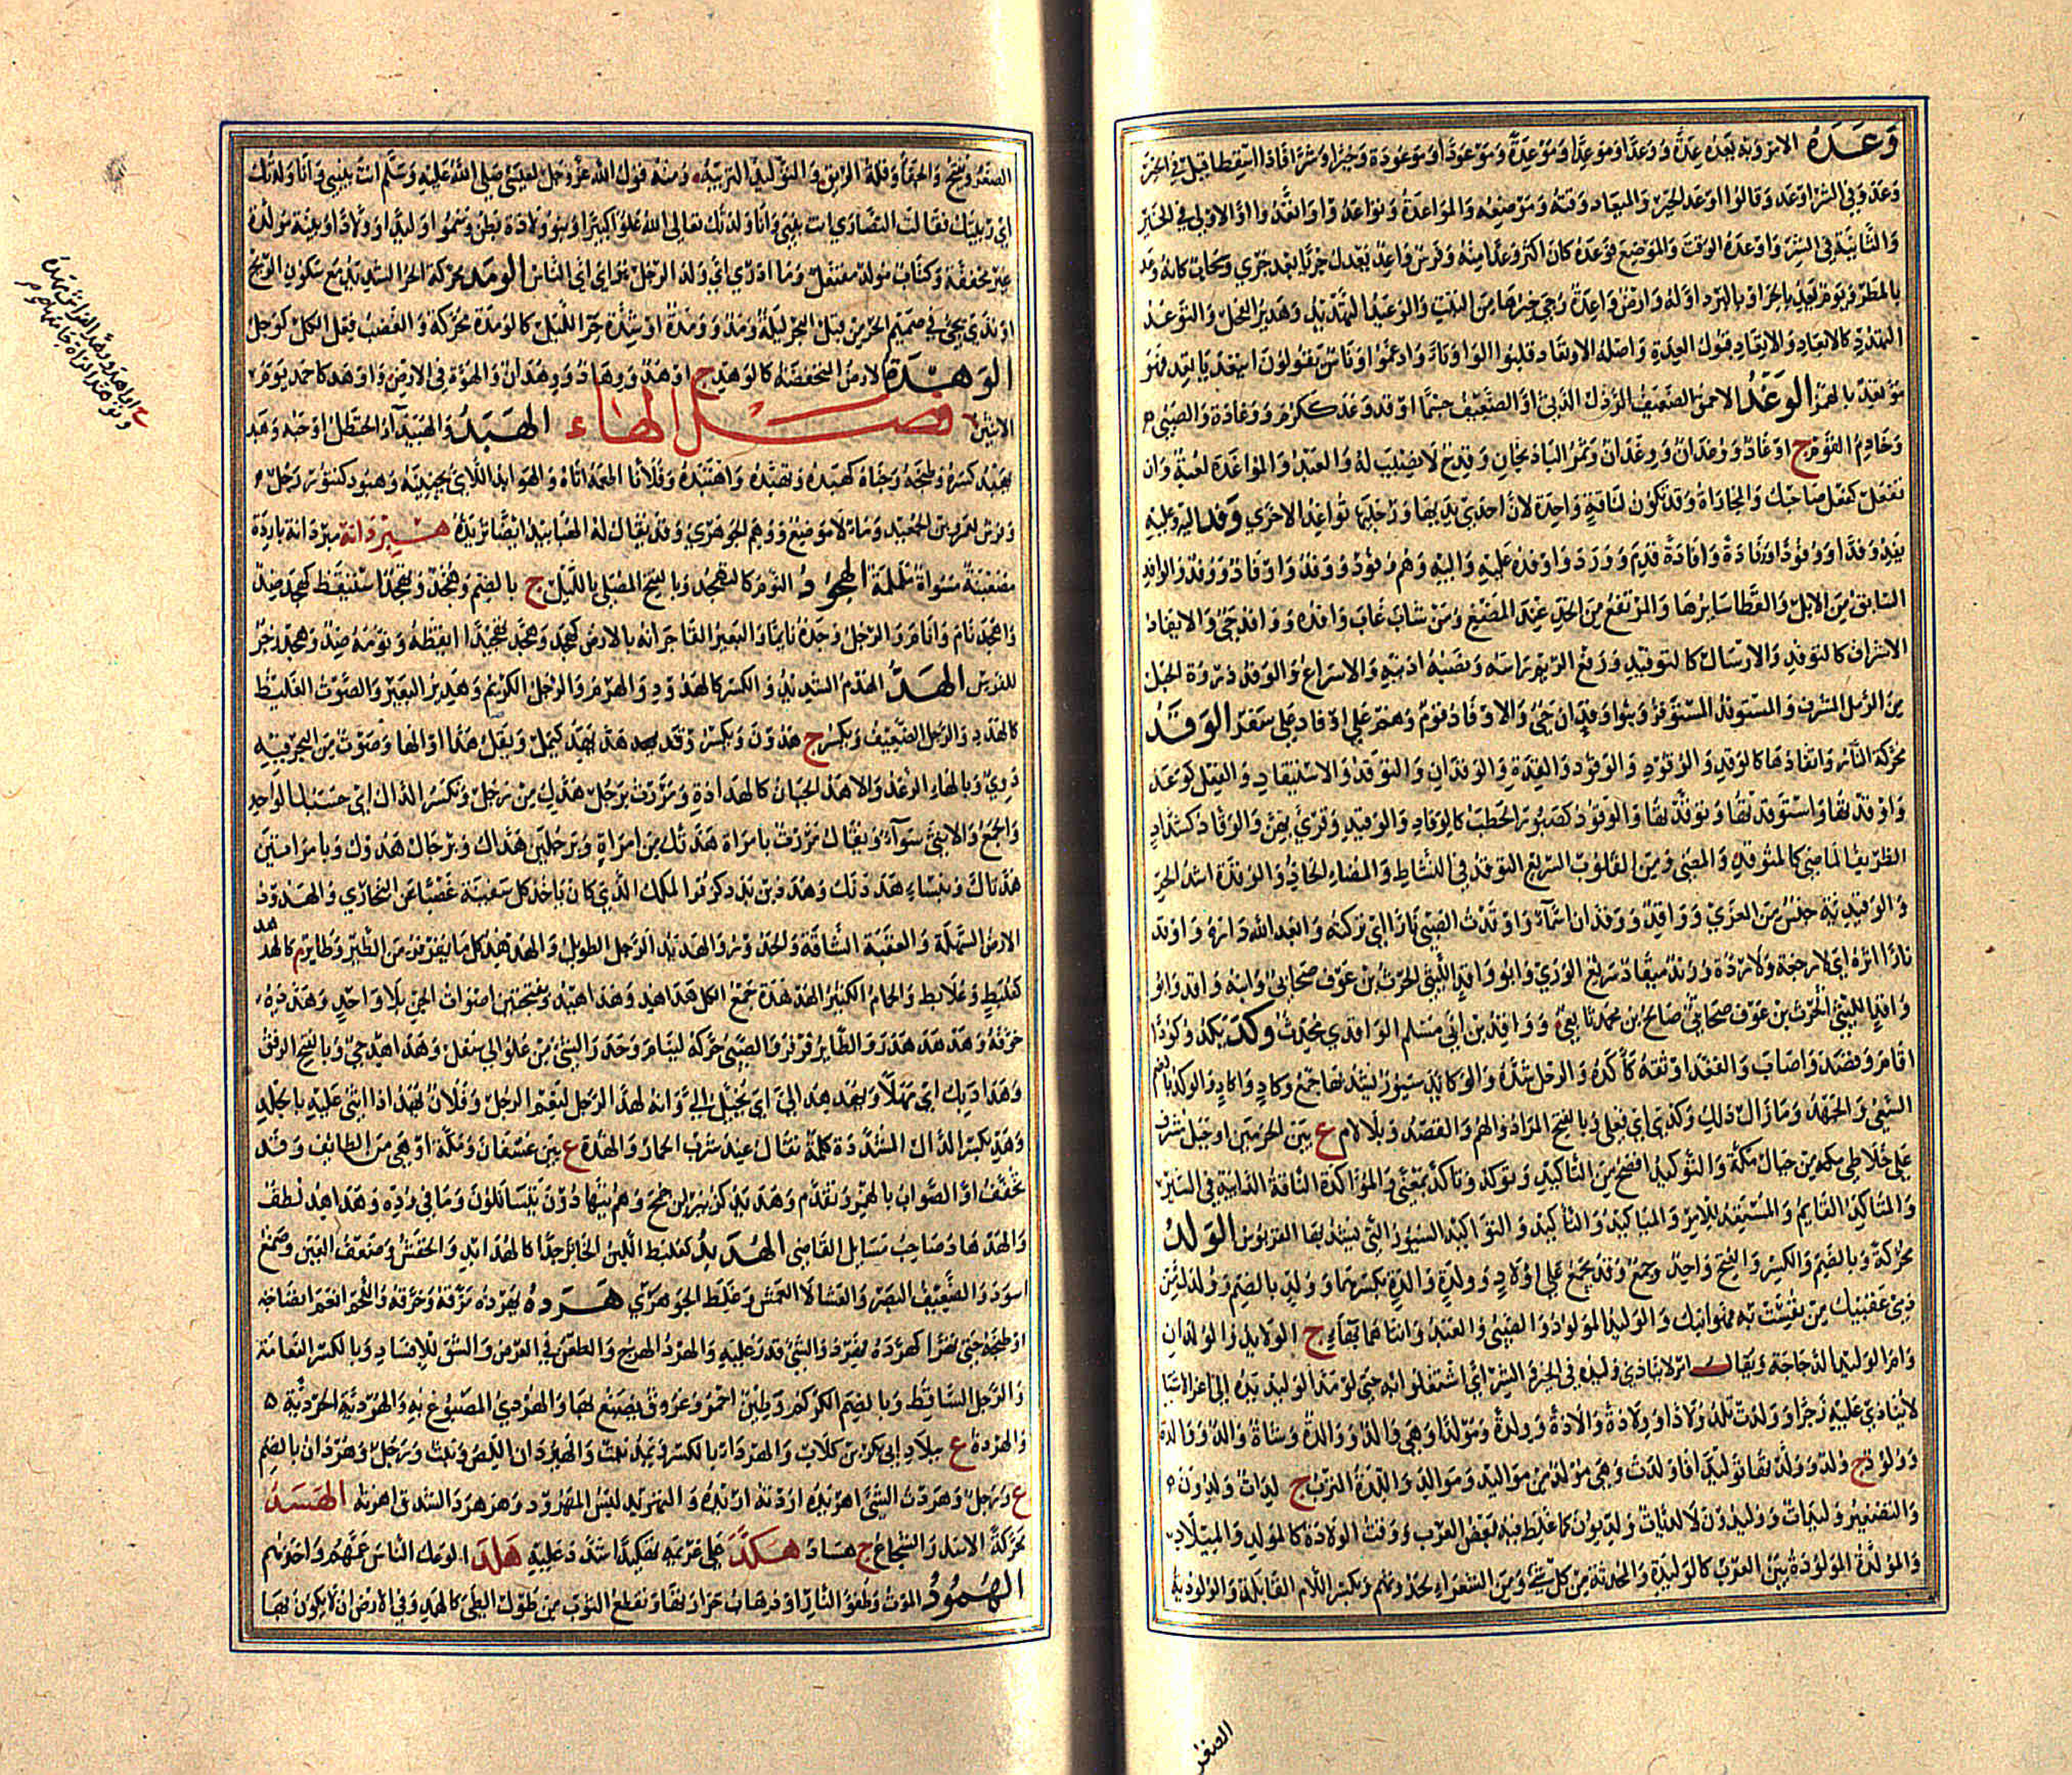 وَعَدَهُ الامر وبه يعد عدة ووعدا وموعدا وموعدة وموعودا وموعودة وخيرا وشرا فاذا اسقطا قيل في الخير
وعد وفي الشر اوعد وقالوا اوعد الخير والميعاد وقته وموضعه والمواعدة وتواعدوا واتعدوا او الاولى في الخير
والثانية في الشر وواعده الوقت والموضع فوعده كان اكثر وعدا منه وفرس واعد يعدك جريا بعد جري وسحاب كانه وعد
بالمطر ويوم يعد بالحر او بالبرد اوله وارض واعدة رجي خيرها من النبت والوعيد التهديد وهدير الفحل والتوعد
التهدد كالايعاد والاتعاد قبول العدة واصله الاوتعاد قلبوا الواو تاء وادغموا وناس يقولون ايتعد ياتعد فهو
موتعد بالهمز الوَغْدُ الاحمق الضعيف الرذل الدني او الضعيف جسما وقد وغد ككرم وغادة والصبي
وخادم القوم ج اوغاد ووغدان ووغدان وثمر الباذنجان وقدح لا نصيب له والعبد والمواغدة لعبة وان
تفعل كفعل صاحبك والمجاراة وقد تكون لناقة واحدة لان احدى يديها ورجليها تواغد الاخرى وَفَدَ اليه وعليه
يفد وفدا ووفودا ووفادة وافادة قدم وورد واوفده عليه واليه وهم وفود ووفد واوفاد ووفد والوافد
السابق من الابل والقطا سايرها والمرتفع من الخد عند المضغ ومن شاب غاب وافداه ووافد حي والايفاد
الاشراف كالتوفد والارسال كالتوفيد ورفع الريم راسه ونصبه اذنيه والاسراع والوفد ذروة الحبل
من الرمل المشرف والمستوفد المستوفز وبنو وفدان حي والاوفاد قوم وهم على اوفاد على سفر الوَقَدُ
محركة النار واتقادها كالوقد والوقود والوقود والقدة والوقدان والتوقد والاستيقاد والفعل كوعد
واوقدتها واستوقدتها وتوقدتها والوقود كصبور الحطب كالوقاد والوقيد وقرئ بهن والوقاد كشداد
الظريف الماضي كالمتوقد والمضي ومن القلوب السريع التوقد في النشاط والمضاء الحاد والوقدة اشد الحر
والوقيدية جنس من المعزى وواقد ووقدان اسماء واوقدت للصبي نارا اي تركته وابعد الله داره واوقد
نارا اثره اي لا رجعه ولا رده وزند ميقاد سريع الوري وابو واقد الليثي الحرث بن عوف صحابي وابنه واقد وابو
واقد الليثي الحرث بن عوف صحابي صالح بن محمد تابعي وواقد بن ابي مسلم الواقدي محدث وَكَدَ يكد وكودا
اقام وقصد واصاب والعقد اوثقه كأكده والرحل شده والوكائد سيور يشد بها جمع وكاد واكاد والوكد بالضم
السعي والجهد وما زال ذلك وكدي اي فعلي وبالفتح المراد والهم والقصد وبلا لام ع بين الحرمين او جبل مشرف
على خلاطى مكة من جبال مكة والتوكيد افصح من التأكيد وتوكد وتأكد بمعنى والمواكدة الناقة الدائبة في السير
والمتأكد القايم المستعد للامر والمياكيد والتأكيد والتواكيد السيور التي يشد بها القربوس الوَلَدُ
محركة وبالضم والكسر والفتح واحد وجمع وقد يجمع على اولاد وولدة والدة بكسرهما وولد بالضم وولدك من
دمى عقبيك من نفست به فهو ابنك والوليد المولود والصبي والعبد وانثاهما بهاء ج الولايد والولدان
وام الوليد الدجاجة ويقال امر لا ينادى وليده في الخير والشر اي اشتغلوا به حتى لو مد الوليد يده الى اعز الاشيا
لا ينادى عليه زجرا وولدت تلد ولادا وولادة والادة ولدة ومولدا وهي والد ووالدة وشاة والد ووالدة
وولود ج ولد وولد نقا توليدا فاولدت وهي مولد من مواليد وموالد واللدة الترب ج لدات ولدون
والتصغير وليدات ووليدون لا لديات ولديون كما غلط فيه بعض العرب ووقت الولادة كالمولد والميلاد
والمولدة المولودة بين العرب كالوليدة والمحدثة من كل شي ومن الشعراء لحدوثهم وبكسر اللام القابلة والولودية
الصغر
الصغر ويفتح والجفاء وقلة الرفق والتوليد التربية ومنه قول الله عز وجل لعيسى صلى الله عليه وسلم انت نبيي وانا ولدتك
اي ربيتك فقالت النصارى انت بنيي وانا ولدتك تعالى الله علوا كبيرا وبنو ولادة بطن وسموا وليدا وولادا وبينة مولدة
غير محققة وكتاب مولد مفتعل وما ادري اي ولد الرجل هو اي اي الناس الوَمَدُ محركة الحر الشديد مع سكون الريح
او ندى يجيء في صميم الحر من قبل البحر ليلة ومد وومدة او شدة حر الليل كالومدة محركة والغضب فعل الكل كوجل
الوَهْدَةُ الارض المنخفضة كالوهد ج اوهد ووهاد ووهدان والهوة في الارض واوهد كاحمد يوم
الاثنين فصل الهاء الهَبَدُ والهبيد الحنظل او حبه وهبد
يهبد كسره وطبخه وجناه كهبده وتهبده واهتبده وفلانا اطعمه اياه والهوابد اللائي يجنينه وهبود كتنور رجل
وفرس لعمرو بن الجعيد وماء لا موضع ووهم الجوهري وقد يقال له الهبابيد ايضا تريدة هبردانة مبردانة باردة
مصعنبة مسواة ململمة الهُجُودُ النوم كالتهجد وبالفتح المصلي بالليل ج بالضم وهجد وتهجد استيقظ كهجد ضد
واهجد نام وانام والرجل وجده نايما والبعير القى جرانه بالارض كهجد وهجد تهجيدا ايقظه ونومه ضد وهجد زجر
للفرس الهَدُّ الهدم الشديد والكسر كالهدود والهرم والرجل الكريم وهدير البعير والصوت الغليظ
كالهدد والرجل الضعيف ويكسر ج هدون ويكسر وقد هد يهد كيمل ويقل هدا او الهاد صوت من البحر فيه
دوي وبالهاء الرعد والاهد الجبان كالهدادة ومررت برجل هدك من رجل وتكسر الدال اي حسبك الواحد
والجمع والانثى سواء ويقال مررت بامراة هدتك من امراة وبرجلين هداك وبرجال هدوك وبامراتين
هدتاك وبنساء هددنك وهدد بن بدد كزفر الملك الذي كان ياخذ كل سفينة غصبا عن البخاري والهدود
الارض السهلة والعقبة الشاقة والحدور والهديد الرجل الطويل والهدهد كل ما يقرقر من الطير وطاير م كالهدهد
كعلبط وعلابط والحمام الكثير الهدهدة جمع الكل هداهد وهداهيد وبفتحتين اصوات الجن بلا واحد وهدهده
حركه وهدهد هدر والطاير قرقر والصبي حركه لينام وحدر الشي من علو الى سفل وهداهد حي وبالفتح الرفق
وهداديك اي مهلا ويهدهد الي اي يخيل الي وانه لهد الرجل لنعم الرجل وفلان يهد اذا اثني عليه بالجلد
وهد بكسر الدال المشددة كلمة تقال عند شرب الحمار والهدة ع بين عسفان ومكة او هي من الطائف وقد
تخفف او الصواب بالهمز وتقدم وهديد كزبير بن جمح وهم بينهما دون يتسائلون وما في وده وهداهد لطف
والهدهاد صاحب مسائل القاضي الهُدَبِدُ كعلبط اللبن الخاثر جدا كالهدابد والخفش وضعف العين وصمغ
اسود والضعيف البصر والعشا لا العمش وغلط الجوهري هَرَدَهُ يهرده مزقه وخرقه واللحم انعم انضاجه
او طبخه حتى تهرا كهرده تهريدا والشي قدر عليه والهرد الهرج والطعن في العرض والشق للافساد وبالكسر النعامة
والرجل الساقط وبالضم الكركم وطين احمر وعروق يصبغ بها والهردي المصبوغ به والهردية الحردية
والهردة ع ببلاد ابي بكر بن كلاب والهرداء بالكسر ويمد نبت والهيردان اللص ونبت ورجل وهردان بالضم
ع ورجل وهردت الشي اهريده اردته اريده والتهريد لبس المهرود وهرهر د الشدق اهرته الهَسَدُ
محركة الاسد والشجاع ج هساد هَكَّدَ على غريمه تهكيدا اشدد عليه هَلَدَ الوعك الناس عنهم واخذهم
الهُمُودُ الموت وطفؤ النار او ذهاب حرارتها وتقطع الثوب من طول الطي كالهمد وفي الارض ان لا يكون بها